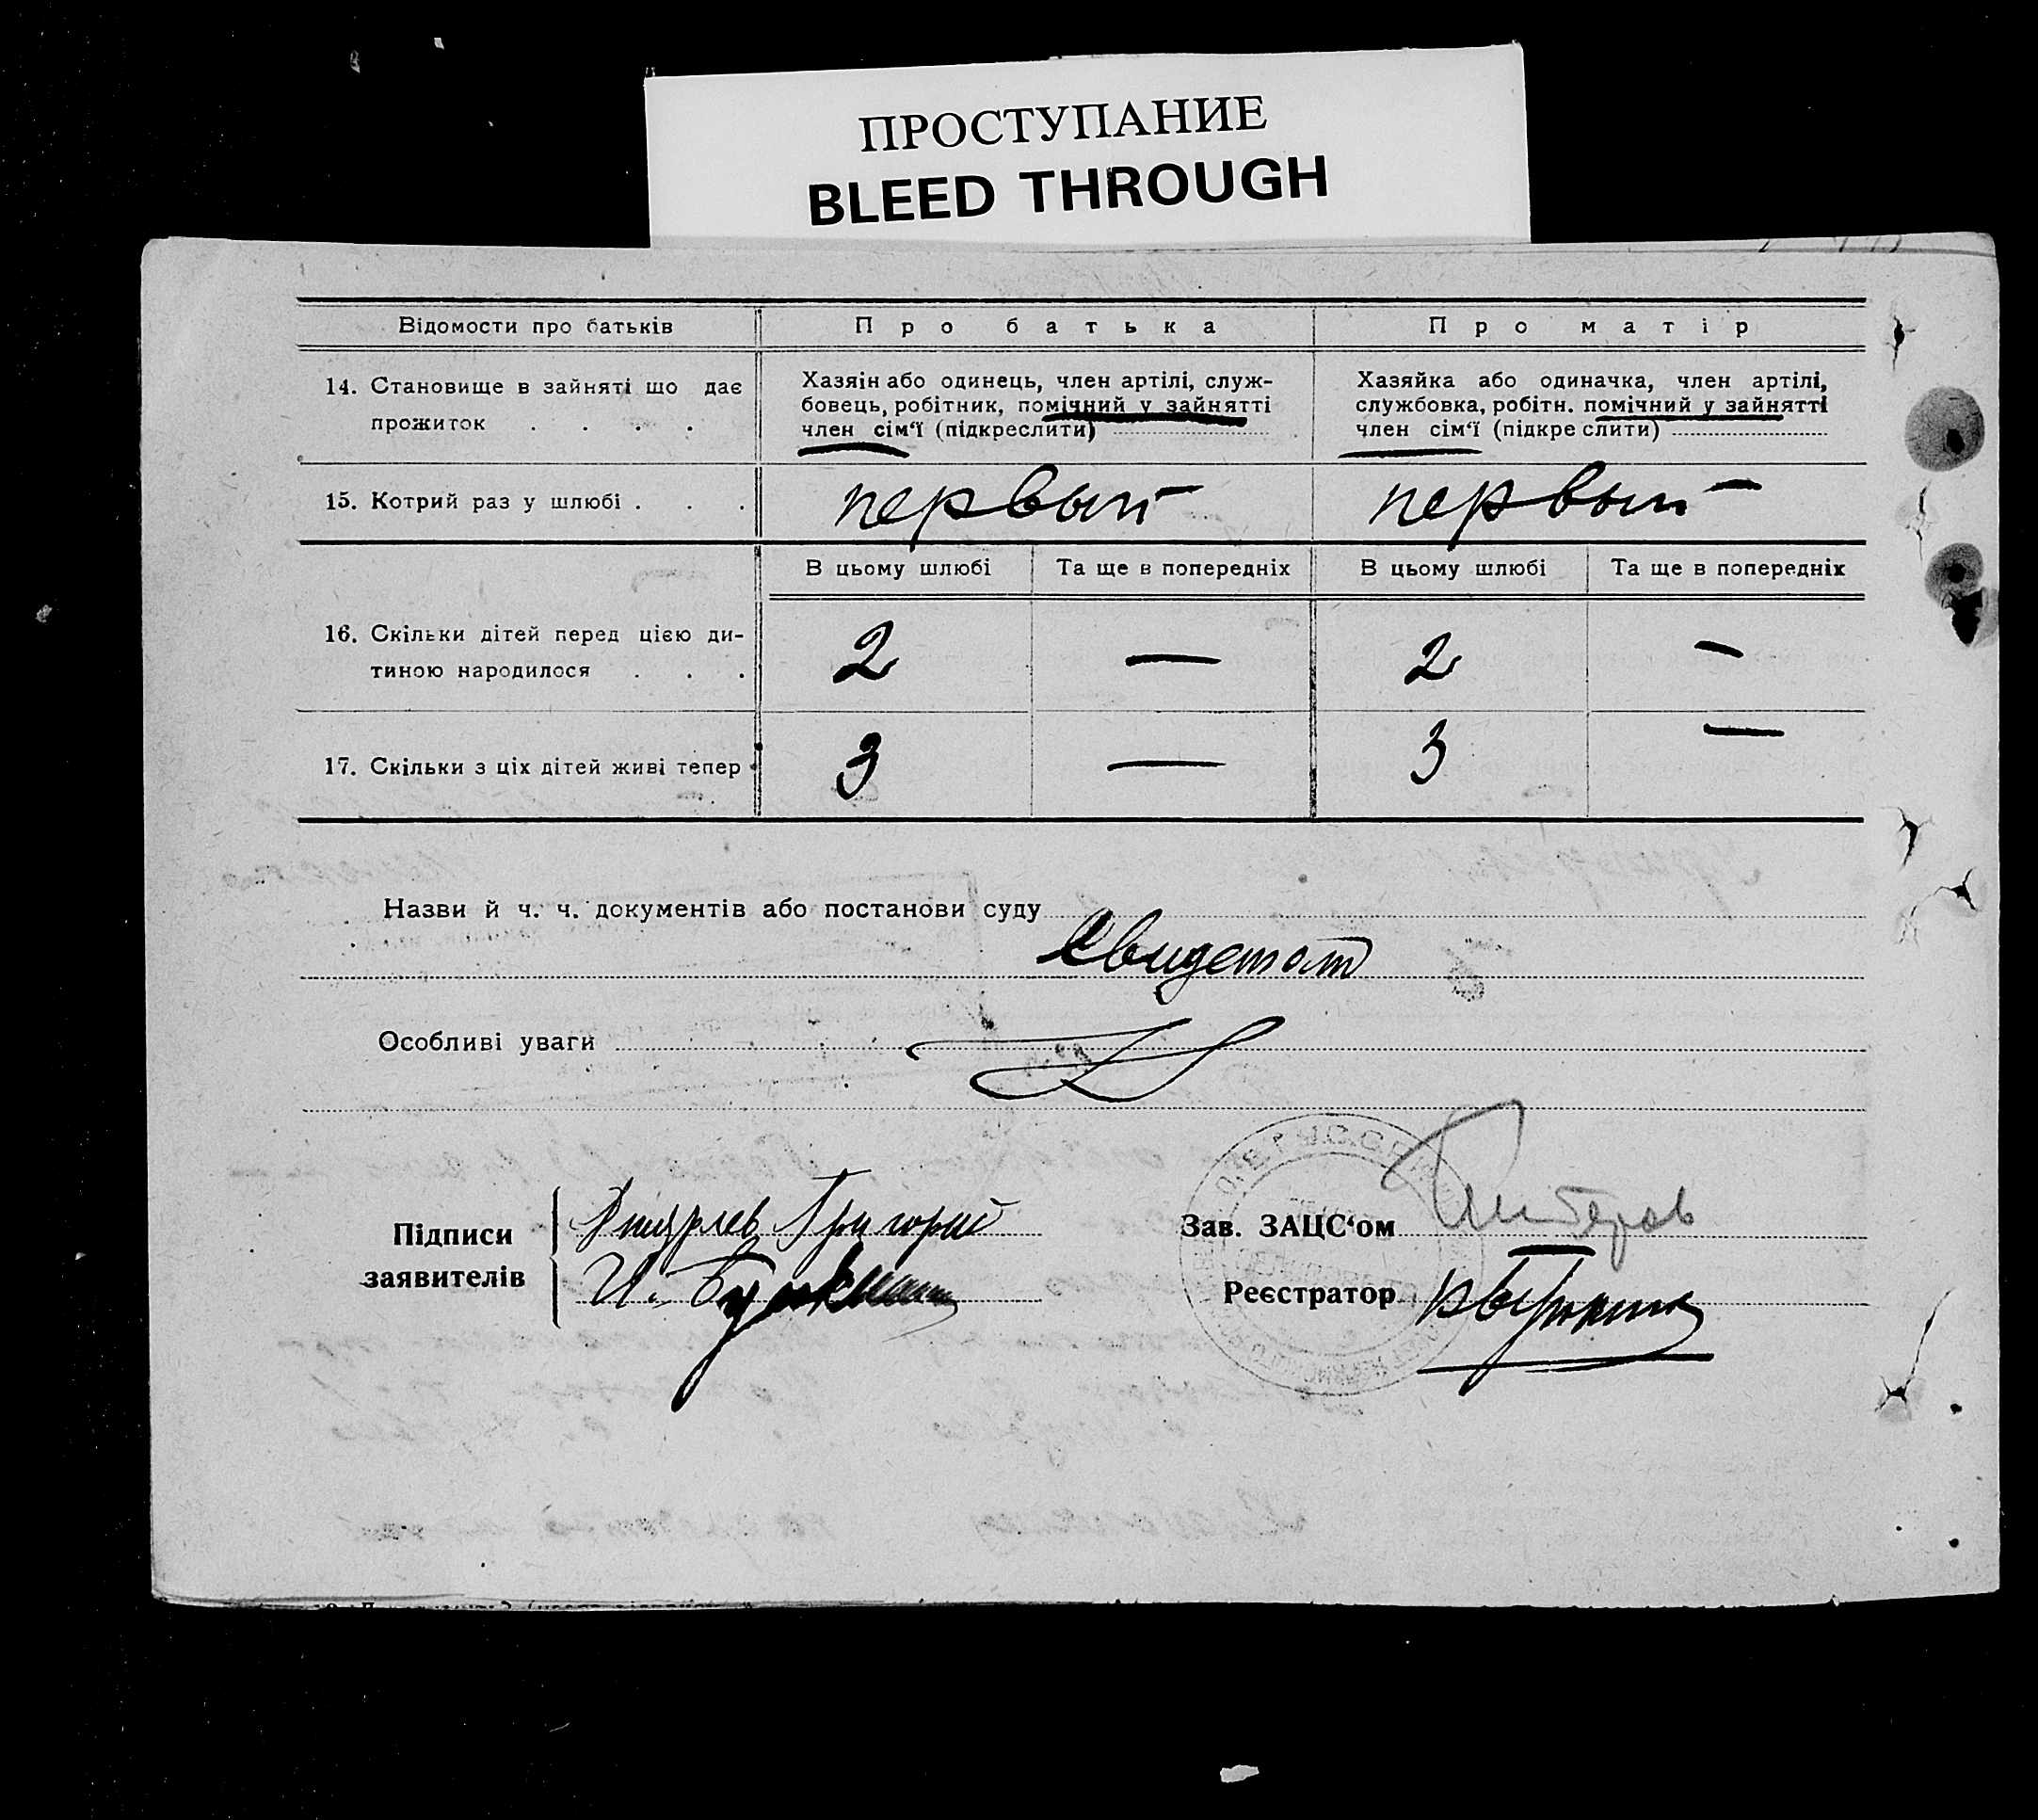 ПРОСТУПАНИЕ
BLEED THROUGH
Відомости про батьків
Про батька
Про матір
14. Становище в зайняті що дає
прожиток . . . .
Хазяін або одинець, член артілі, служ-
бовець, робітник, помічний у зайнятті
член сім'ї (підкреслити)
Хазяйка або одиначка, член артілі,
службовка, робітн. помічний у зайнятті
член сім'ї (підкреслити)
15. Котрий раз у шлюбі . . .
первый
первый
В цьому шлюбі
Та ще в попередніх
В цьому шлюбі
Та ще в попередніх
16. Скільки дітей перед цією ди-
тиною народилося . . .
2 — 2 —
17. Скільки з ціх дітей живі тепер
3 — 3 —
Назви й ч. ч. документів або постанови суду
Особливі уваги
Підписи
заявителів
Григорий
И.
Зав. ЗАЦС'ом
Реєстратор